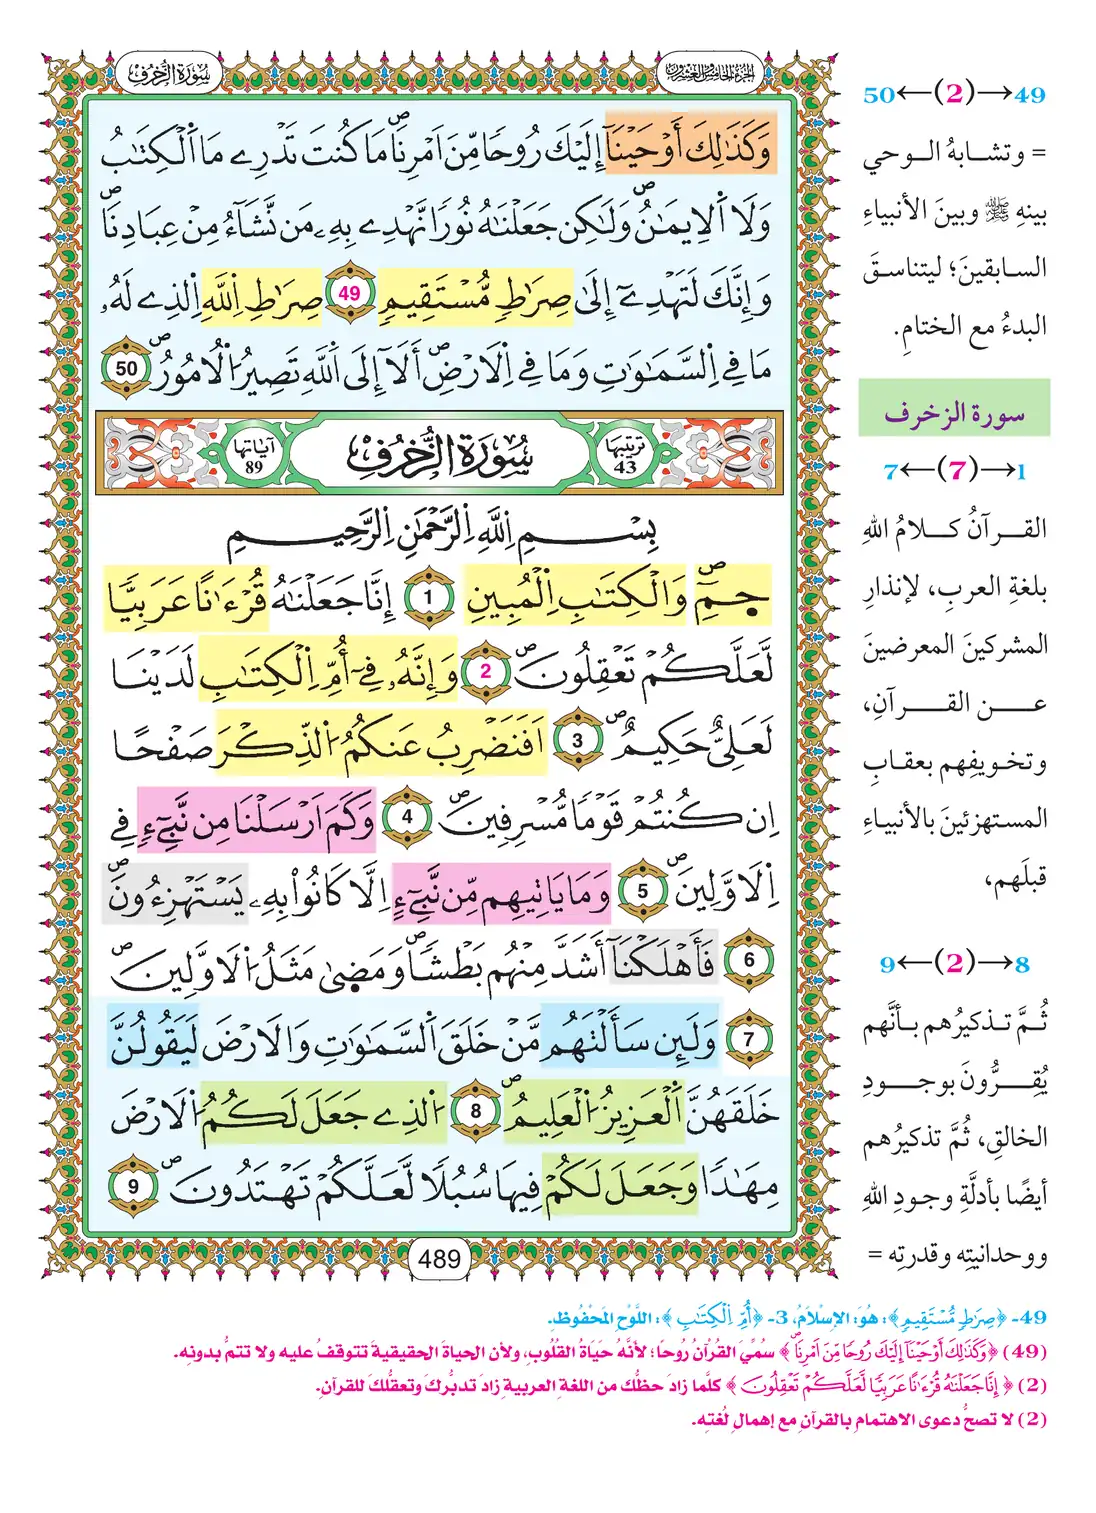 سُورَةُ الزُّخْرُفِ
الجزء الخامس والعشرون
وَكَذَٰلِكَ أَوْحَيْنَآ إِلَيْكَ رُوحًا مِّنَ اَمْرِنَاۖ مَا كُنتَ تَدْرِے مَا اَ۬لْكِتَٰبُ
وَلَا اَ۬لِايمَٰنُۖ وَلَٰكِن جَعَلْنَٰهُ نُورًا نَّهْدِے بِهِۦ مَن نَّشَآءُ مِنْ عِبَادِنَاۖ
وَإِنَّكَ لَتَهْدِےٓ إِلَىٰ صِرَٰطٖ مُّسْتَقِيمٖ 49 صِرَٰطِ اِ۬للَّهِ اِ۬لذِے لَهُۥ
مَا فِے اِ۬لسَّمَٰوَٰتِ وَمَا فِے اِ۬لَارْضِۖ أَلَآ إِلَى اَ۬للَّهِ تَصِيرُ اُ۬لُامُورُۖ 50
ترتيبها 43 سُورَةُ الزُّخْرُفِ آياتها 89
بِسْمِ اِ۬للَّهِ اِ۬لرَّحْمَٰنِ اِ۬لرَّحِيمِ
حٰمِٓۖ وَالْكِتَٰبِ اِ۬لْمُبِينِ 1 إِنَّا جَعَلْنَٰهُ قُرْءَٰنًا عَرَبِيّٗا
لَّعَلَّكُمْ تَعْقِلُونَۖ 2 وَإِنَّهُۥ فِےٓ أُمِّ اِ۬لْكِتَٰبِ لَدَيْنَا
لَعَلِيٌّ حَكِيمٌۖ 3 اَفَنَضْرِبُ عَنكُمُ اُ۬لذِّكْرَ صَفْحًا
اِن كُنتُمْ قَوْمٗا مُّسْرِفِينَۖ 4 وَكَمَ اَرْسَلْنَا مِن نَّبِےٓءٖ فِے
اِ۬لَاوَّلِينَۖ 5 وَمَا يَاتِيهِم مِّن نَّبِےٓءٍ اِلَّا كَانُوا۟ بِهِۦ يَسْتَهْزِءُونَۖ
6 فَأَهْلَكْنَآ أَشَدَّ مِنْهُم بَطْشٗاۖ وَمَضَىٰ مَثَلُ اُ۬لَاوَّلِينَۖ
7 وَلَئِن سَأَلْتَهُم مَّنْ خَلَقَ اَ۬لسَّمَٰوَٰتِ وَالَارْضَ لَيَقُولُنَّ
خَلَقَهُنَّ اَ۬لْعَزِيزُ اُ۬لْعَلِيمُۖ 8 اُ۬لذِے جَعَلَ لَكُمُ اُ۬لَارْضَ
مِهَٰدٗا وَجَعَلَ لَكُمْ فِيهَا سُبُلٗا لَّعَلَّكُمْ تَهْتَدُونَۖ 9
489
49→(2)←50
= وتشابهُ الوحي
بينه ﷺ وبينَ الأنبياءِ
السابقينَ؛ ليتناسقَ
البدءُ مع الختامِ.
سورة الزخرف
1→(7)←7
القرآنُ كلامُ اللهِ
بلغةِ العربِ، لإنذارِ
المشركينَ المعرضينَ
عن القرآنِ،
وتخويفِهم بعقابِ
المستهزئينَ بالأنبياءِ
قبلَهم،
8→(2)←9
ثُمَّ تذكيرُهم بأنَّهم
يُقِرُّونَ بوجودِ
الخالقِ، ثُمَّ تذكيرُهم
أيضًا بأدلَّةِ وجودِ اللهِ
ووحدانيتِه وقدرتِه =
49- ﴿صِرَٰطٖ مُّسْتَقِيمٖ﴾: هُوَ: الإِسْلَامُ، 3- ﴿أُمِّ اِ۬لْكِتَٰبِ﴾: اللَّوْحِ المَحْفُوظِ.
(49) ﴿وَكَذَٰلِكَ أَوْحَيْنَآ إِلَيْكَ رُوحًا مِّنَ اَمْرِنَاۖ﴾ سُمِّيَ القُرْآنُ رُوحًا؛ لأنَّهُ حَيَاةُ القُلُوبِ، ولأن الحياةَ الحقيقيةَ تتوقفُ عليه ولا تتمُّ بدونه.
(2) ﴿إِنَّا جَعَلْنَٰهُ قُرْءَٰنًا عَرَبِيّٗا لَّعَلَّكُمْ تَعْقِلُونَ﴾ كلَّما زادَ حظُّك من اللغة العربية زادَ تدبُّركَ وتعقُّلكَ للقرآنِ.
(2) لا تصحُّ دعوى الاهتمامِ بالقرآنِ مع إهمالِ لُغتِه.